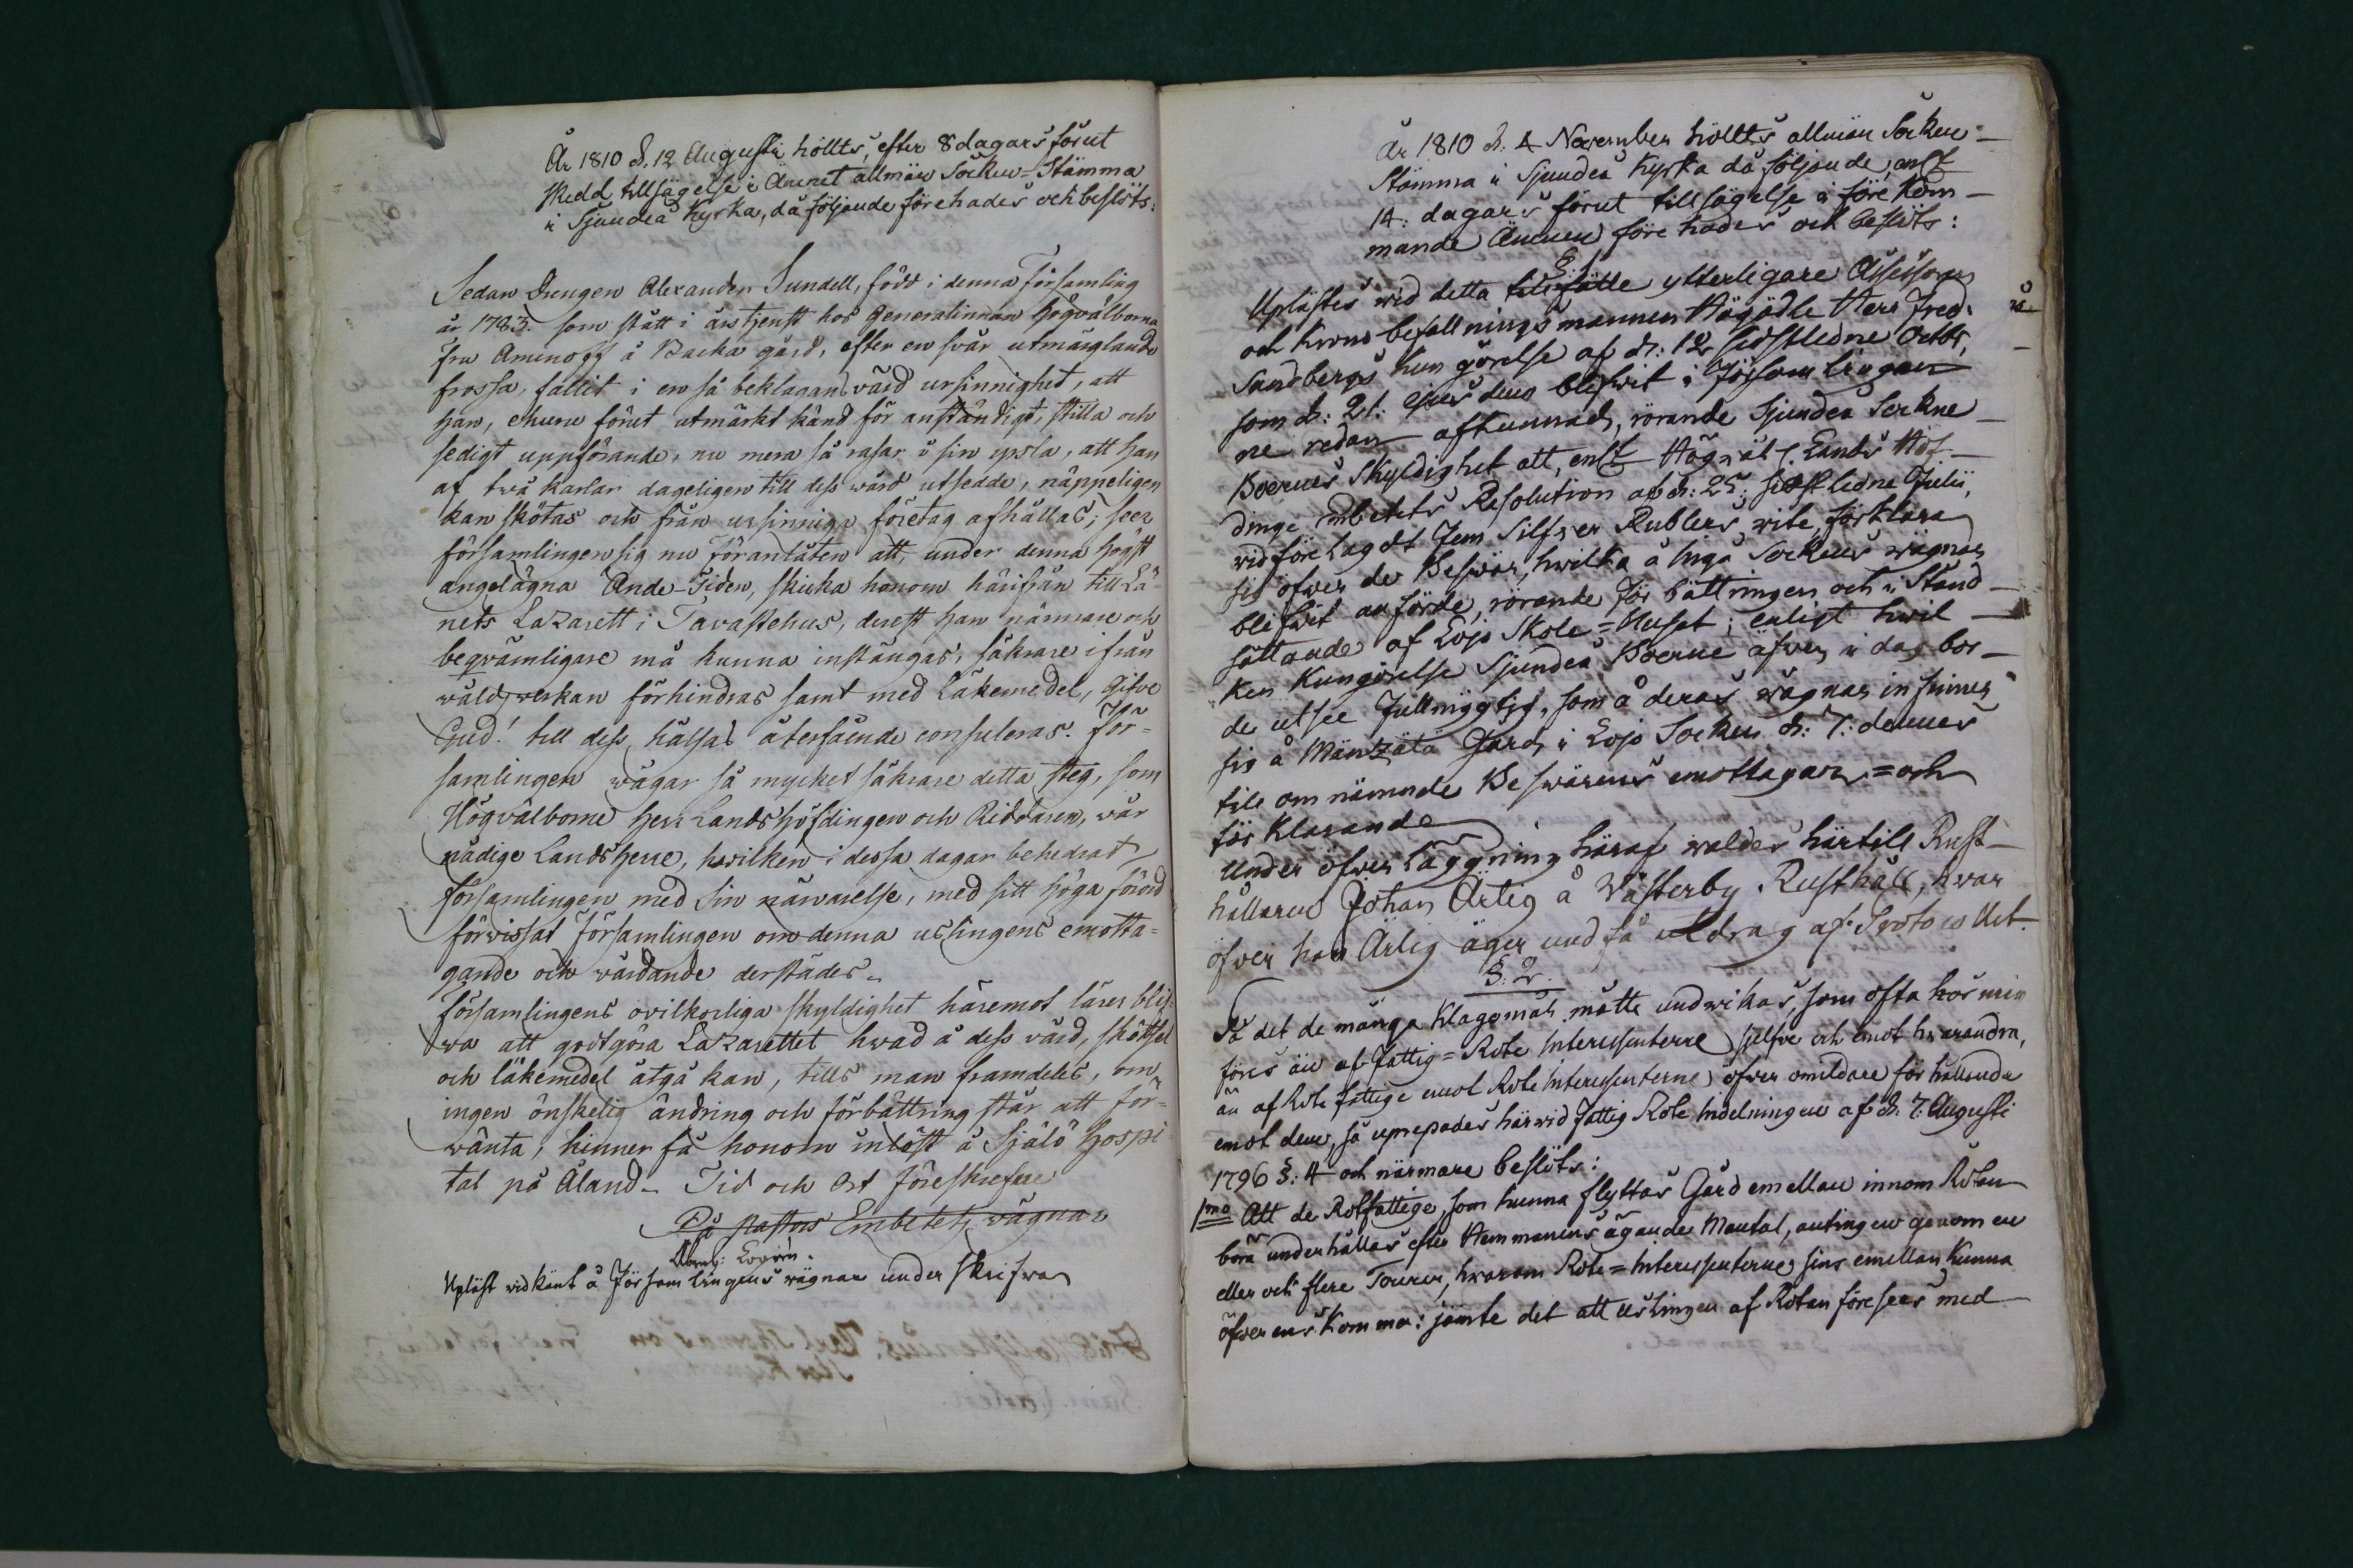 År 1810 d. 12 Augusti höllts, efter 8 dagars förut
skedd tillsägelse i Ämnet allmän Socken=Stämma
i Sjundeå Kyrka, då följande förehades och beslöts:
Sedan Drengen Alexander Sundell, född i denna Församling
år 1783. som stått i årstjenst hos Generalinnan Högvälborna
Fru Aminoff å Backa gård, efter en svår utmärglande
frossa, fallit i en så beklagansvärd ursinnighet, att
han, ehuru förut utmärkt känd för anständigt, stilla och
sedigt uppförande, nu mera så rasar i sin yrsla, att han
af twå karlar dageligen till dess wård utsedde, näppeligen
kan skötas och från ursinniga företag afhållas; seer
församlingen sig nu föranlåten att, under denna högst
angelägna Ande-Tiden, skicka honom härifrån till Lä-
nets Lazarett i Tavastehus, derest han närmare och
beqvämligare må kunna instängas, säkrare ifrån
wåldsverkan förhindras samt med Läkemedel, Gifve
Gud! till dess hälsas återfående consuleras. För-
samlingen wågar så mycket säkrare detta steg, som
Högvälborne Herr Landshöfdingen och Riddaren, wår
nådige Landsherre, hwilken i dessa dagar behedrat
församlingen med Sin närvarelse, med sitt höga förord
förvissat församlingen om denna uslingens emotta-
gande och wårdande derstädes.
Församlingens ovilkorliga skyldighet häremot lärer blif-
wa att godtgöra Lazarettet hwad å dess vård, skötsel
och läkemedel åtgå kan, tills man framdeles, om
ingen önskelig ändring och förbättring står att för-
wänta, hinner få honom inlöst å Själö Hospi-
tal på Åland. Tid och Ort föreskrefne
På Pastors Embetets wägnar
Abrah: Lovén.
Upläst vidkänt å Församlingens wägnar underskrifwa
År 1810 d. 4 November höllts allmän Socken-
Stämma i Sjundeå Kyrka då följande, enl.
14. dagars förut tillsägelse i förekom-
mande Ämnen förehades och beslöts:
§. 1
Uplästes wid detta tillfälle ytterligare Assessoren
och Krono befallningsmannen Högädle Herr Fred.
Sundbergs kungörelse af d: 12 sidstledne Octbr,
som d: 21. ejusdem blifwit i Församlingen
redan afkunnad, rörande Sjundeå Sockne
Boernes Skyldighet att, enl. Högvälb. Lands Höf-
dinge embetets Resolution af d: 25. sidstledne Julii,
vid förelagdt Fem Silfver Rublers wite, förklara
sig öfver de Besvär, hwilka å Ingå Sockens wägnar
blifwit anförde, rörande förbättringen och i Stånd-
sättande af Lojo Skole=Huset; enligt hwil-
ken Kungörelse Sjundeå Boerne äfven i dag bor-
de utse Fullmägtig, som å deras wägnar infinner
sig å Mäntzälä Gård i Lojo Socken d: 7: dennes
till omnämnde Beswärens emottagan=och
förklarande
Under öfverläggning häraf waldes härtill Rust-
hållaren Johan Ärlig å Västerby Rusthåll, hwar
öfver han Ärlig äger undfå utdrag af Protocollet.
§. 2.
På det de många Klagomål måtte undwikas, som ofta hos mig
föres än af Fattig=Rote Interessenterne sjelfve och emot hwarandra,
än af Rote fattige emot Rote Interessenterne öfver omildare förhållande
emot dem, så uprepades härvid Fattig Rote Indelningen af d: 7. Augusti
1796 §: 4 och närmare beslöts:
1mo Att de Rotfattige, som kunna flyttas Gård emellan innom Rotan
bora underhållas efter Hemmanens ägande Mantal, antingen genom en
eller ock flere Tourer, hwarom Rote=Interessenterne sins emellan kunna
öfverenskomma: jämte det att uslingen af Rotan föresees med